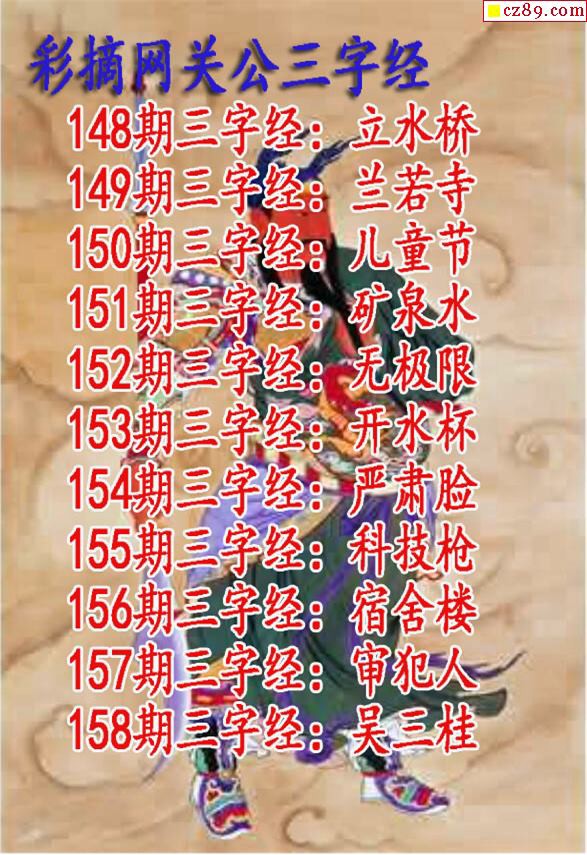 cz89.com
彩摘网关公三字经
148期三字经：立水桥
149期三字经：兰若寺
150期三字经：儿童节
151期三字经：矿泉水
152期三字经：无极限
153期三字经：开水杯
154期三字经：严肃脸
155期三字经：科技枪
156期三字经：宿舍楼
157期三字经：审犯人
158期三字经：吴三桂